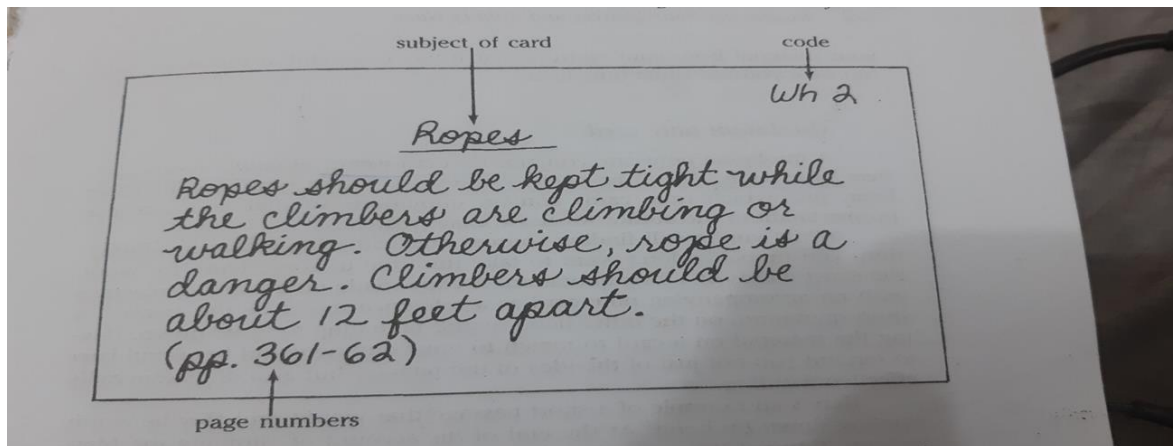 subject of card
code
Wh 2
Ropes
Ropes should be kept tight while
the climbers are climbing or
walking. Otherwise, rope is a
danger. Climbers should be
about 12 feet apart.
(pp. 361-62)
page numbers